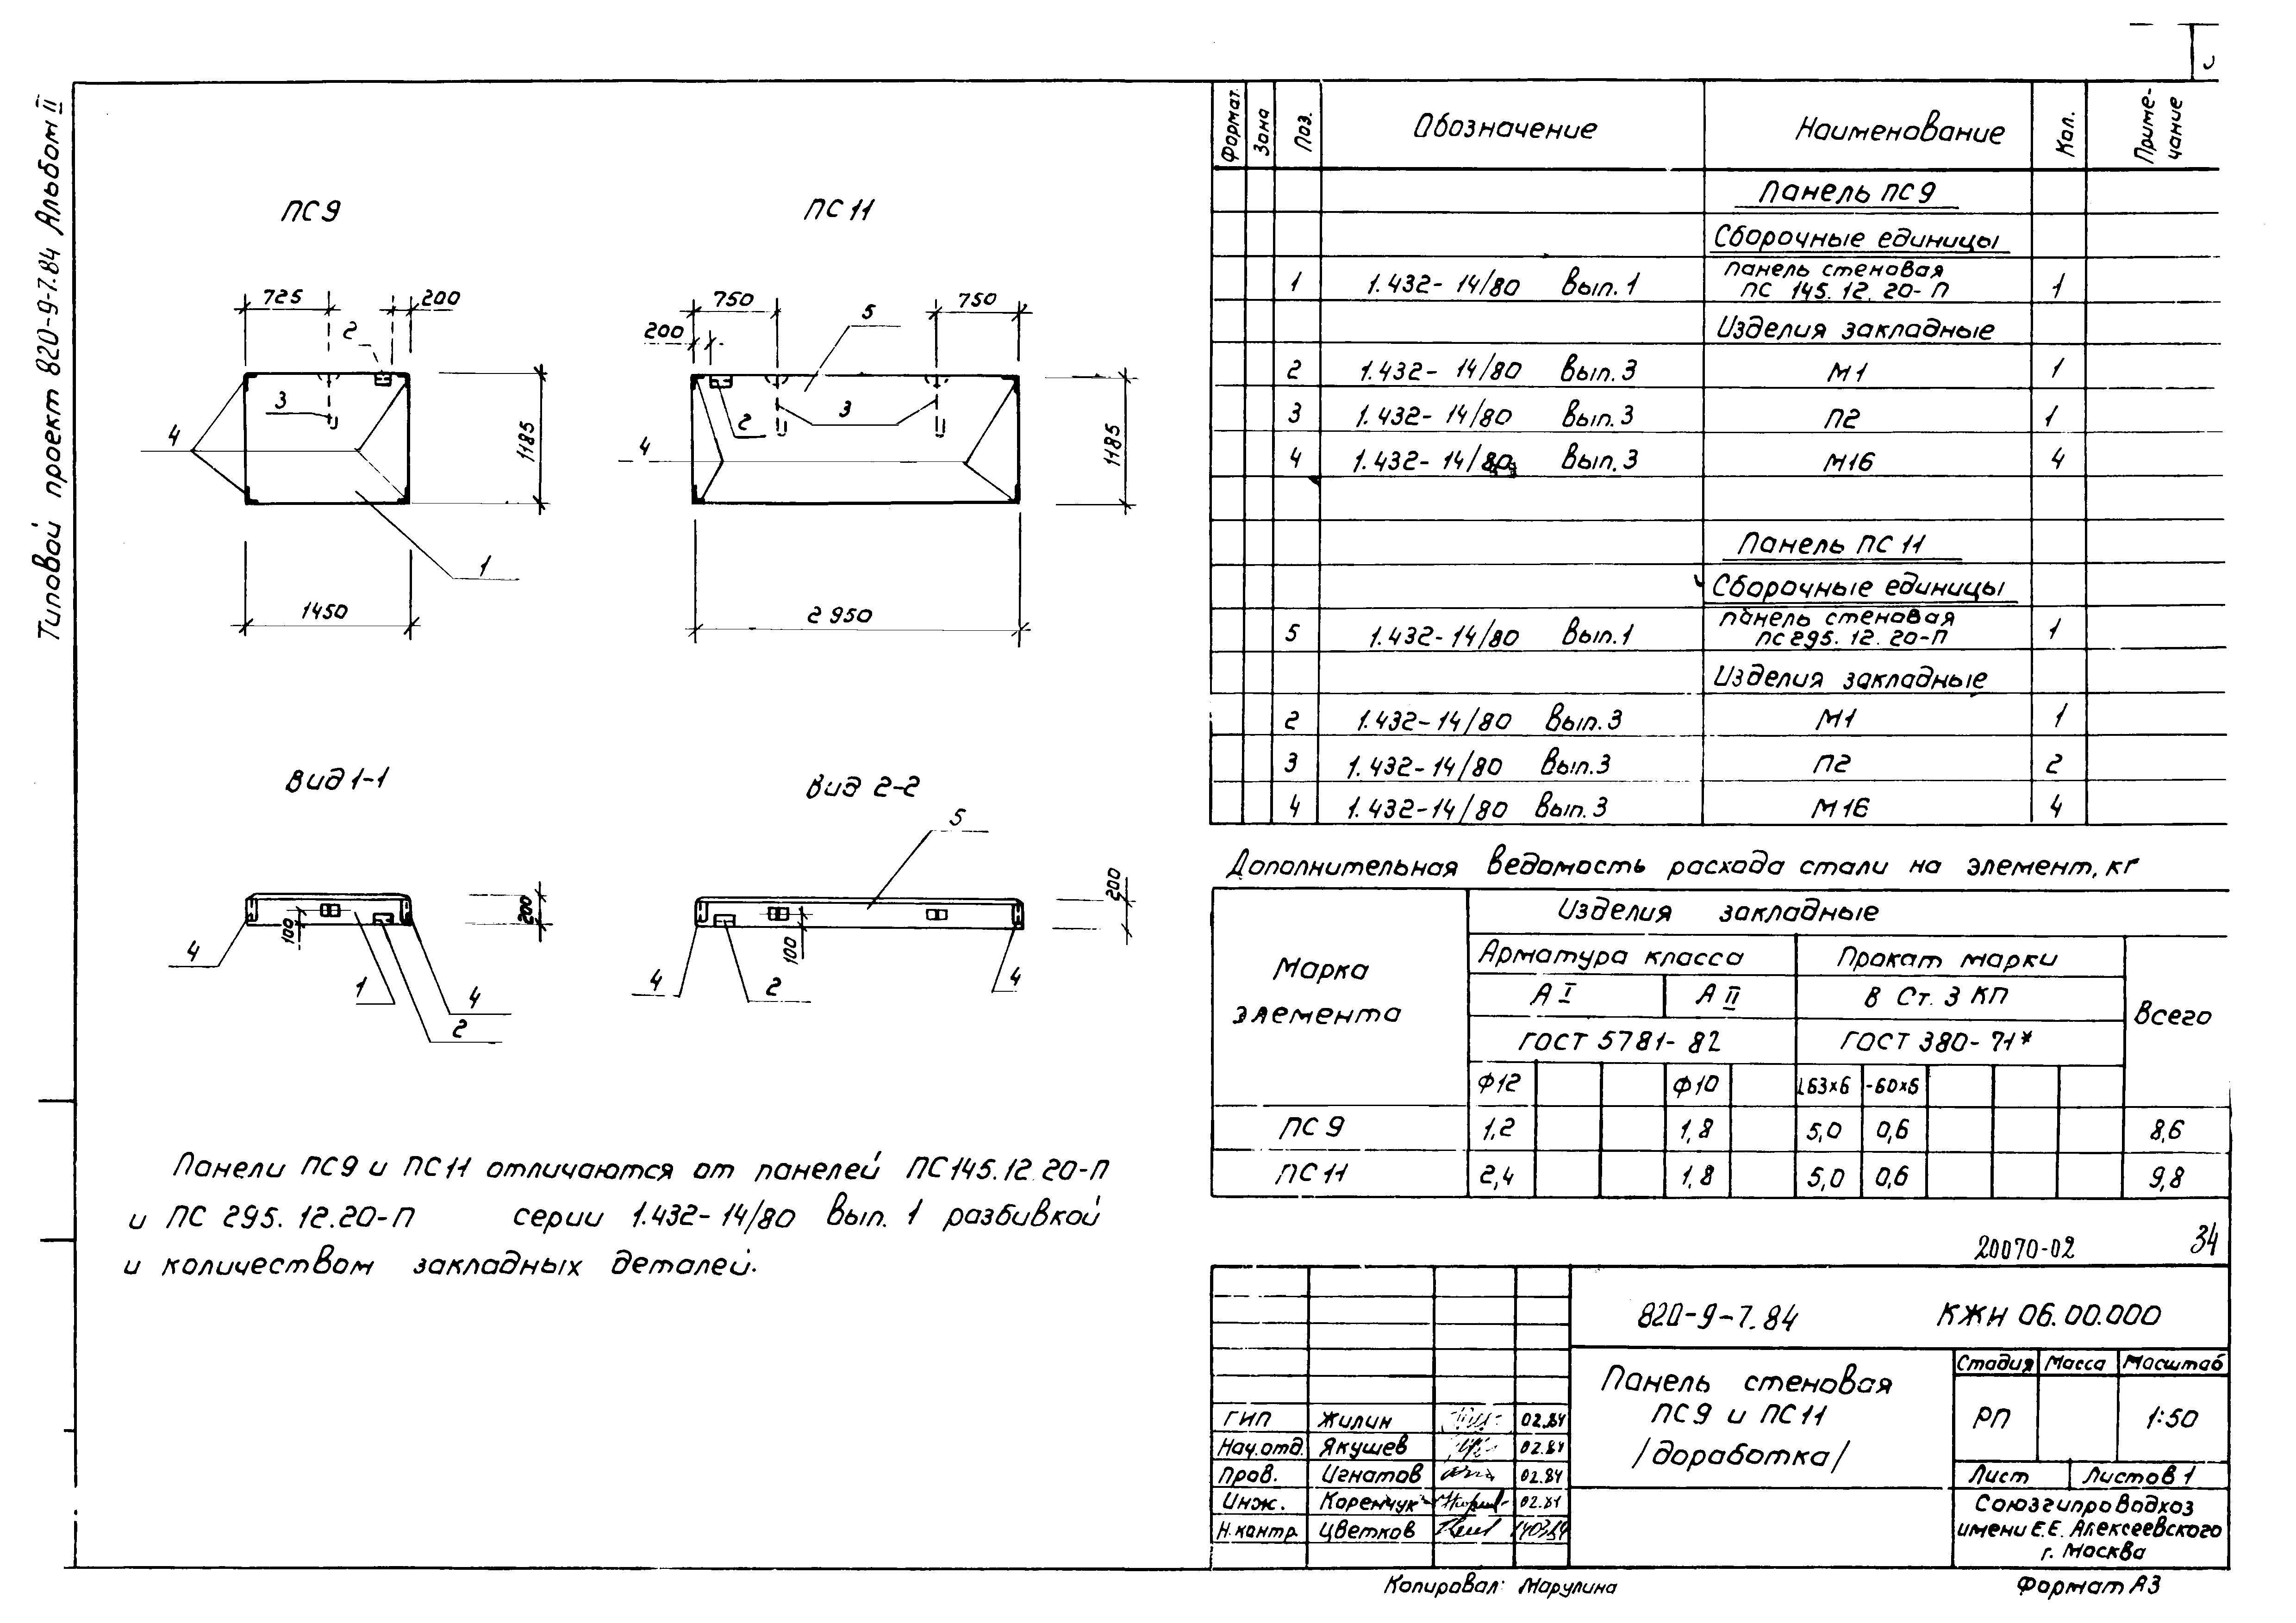 Типовой проект 820-9-7.84 Альбом II
ПС 9
725
200
2
3
4
1185
1
1450
ПС 11
750
5
750
200
2
3
4
1185
2 950
Вид 1-1
4
100
200
1
4
2
Вид 2-2
5
200
100
4
2
4
Панели ПС9 и ПС11 отличаются от панелей ПС145.12.20-П
и ПС 295.12.20-П серии 1.432-14/80 Вып. 1 разбивкой
и количеством закладных деталей.
Формат. Зона Поз. Обозначение Наименование Кол. Приме-
чание
Панель ПС 9
Сборочные единицы
1 1.432-14/80 Вып.1 Панель стеновая
ПС 145.12.20-П 1
Изделия закладные
2 1.432-14/80 Вып.3 М1 1
3 1.432-14/80 Вып.3 П2 1
4 1.432-14/80 Вып.3 М16 4
Панель ПС 11
Сборочные единицы
5 1.432-14/80 Вып.1 Панель стеновая
ПС295.12.20-П 1
Изделия закладные
2 1.432-14/80 Вып.3 М1 1
3 1.432-14/80 Вып.3 П2 2
4 1.432-14/80 Вып.3 М16 4
Дополнительная ведомость расхода стали на элемент, кг
Марка
элемента
Изделия закладные
Арматура класса Прокат марки Всего
А I А II В Ст. 3 КП
ГОСТ 5781-82 ГОСТ 380-71*
Ф12 Ф10 L63х6 -60х6
ПС 9 1,2 1,8 5,0 0,6 8,6
ПС 11 2,4 1,8 5,0 0,6 9,8
20070-02 34
820-9-7.84 КЖИ 06.00.000
Панель стеновая
ПС 9 и ПС 11
/доработка/
Стадия Масса Масштаб
РП 1:50
Лист Листов 1
Союзгипроводхоз
имени Е.Е. Алексеевского
г. Москва
ГИП Жилин 02.84
Нач.отд. Якушев 02.84
Пров. Игнатов 02.84
Инж. Коренчук 02.84
Н.контр. Цветков
Копировал: Марулина Формат А3